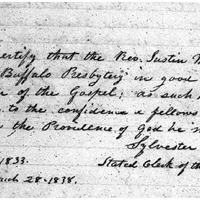 ertify that the Rev. Justin
Buffalo Presbytery in good
of the Gospel; as such
to the confidence & fellows
the Providence of God he
Sylvester
1833. Stated Clerk of the
arch 28-1838.